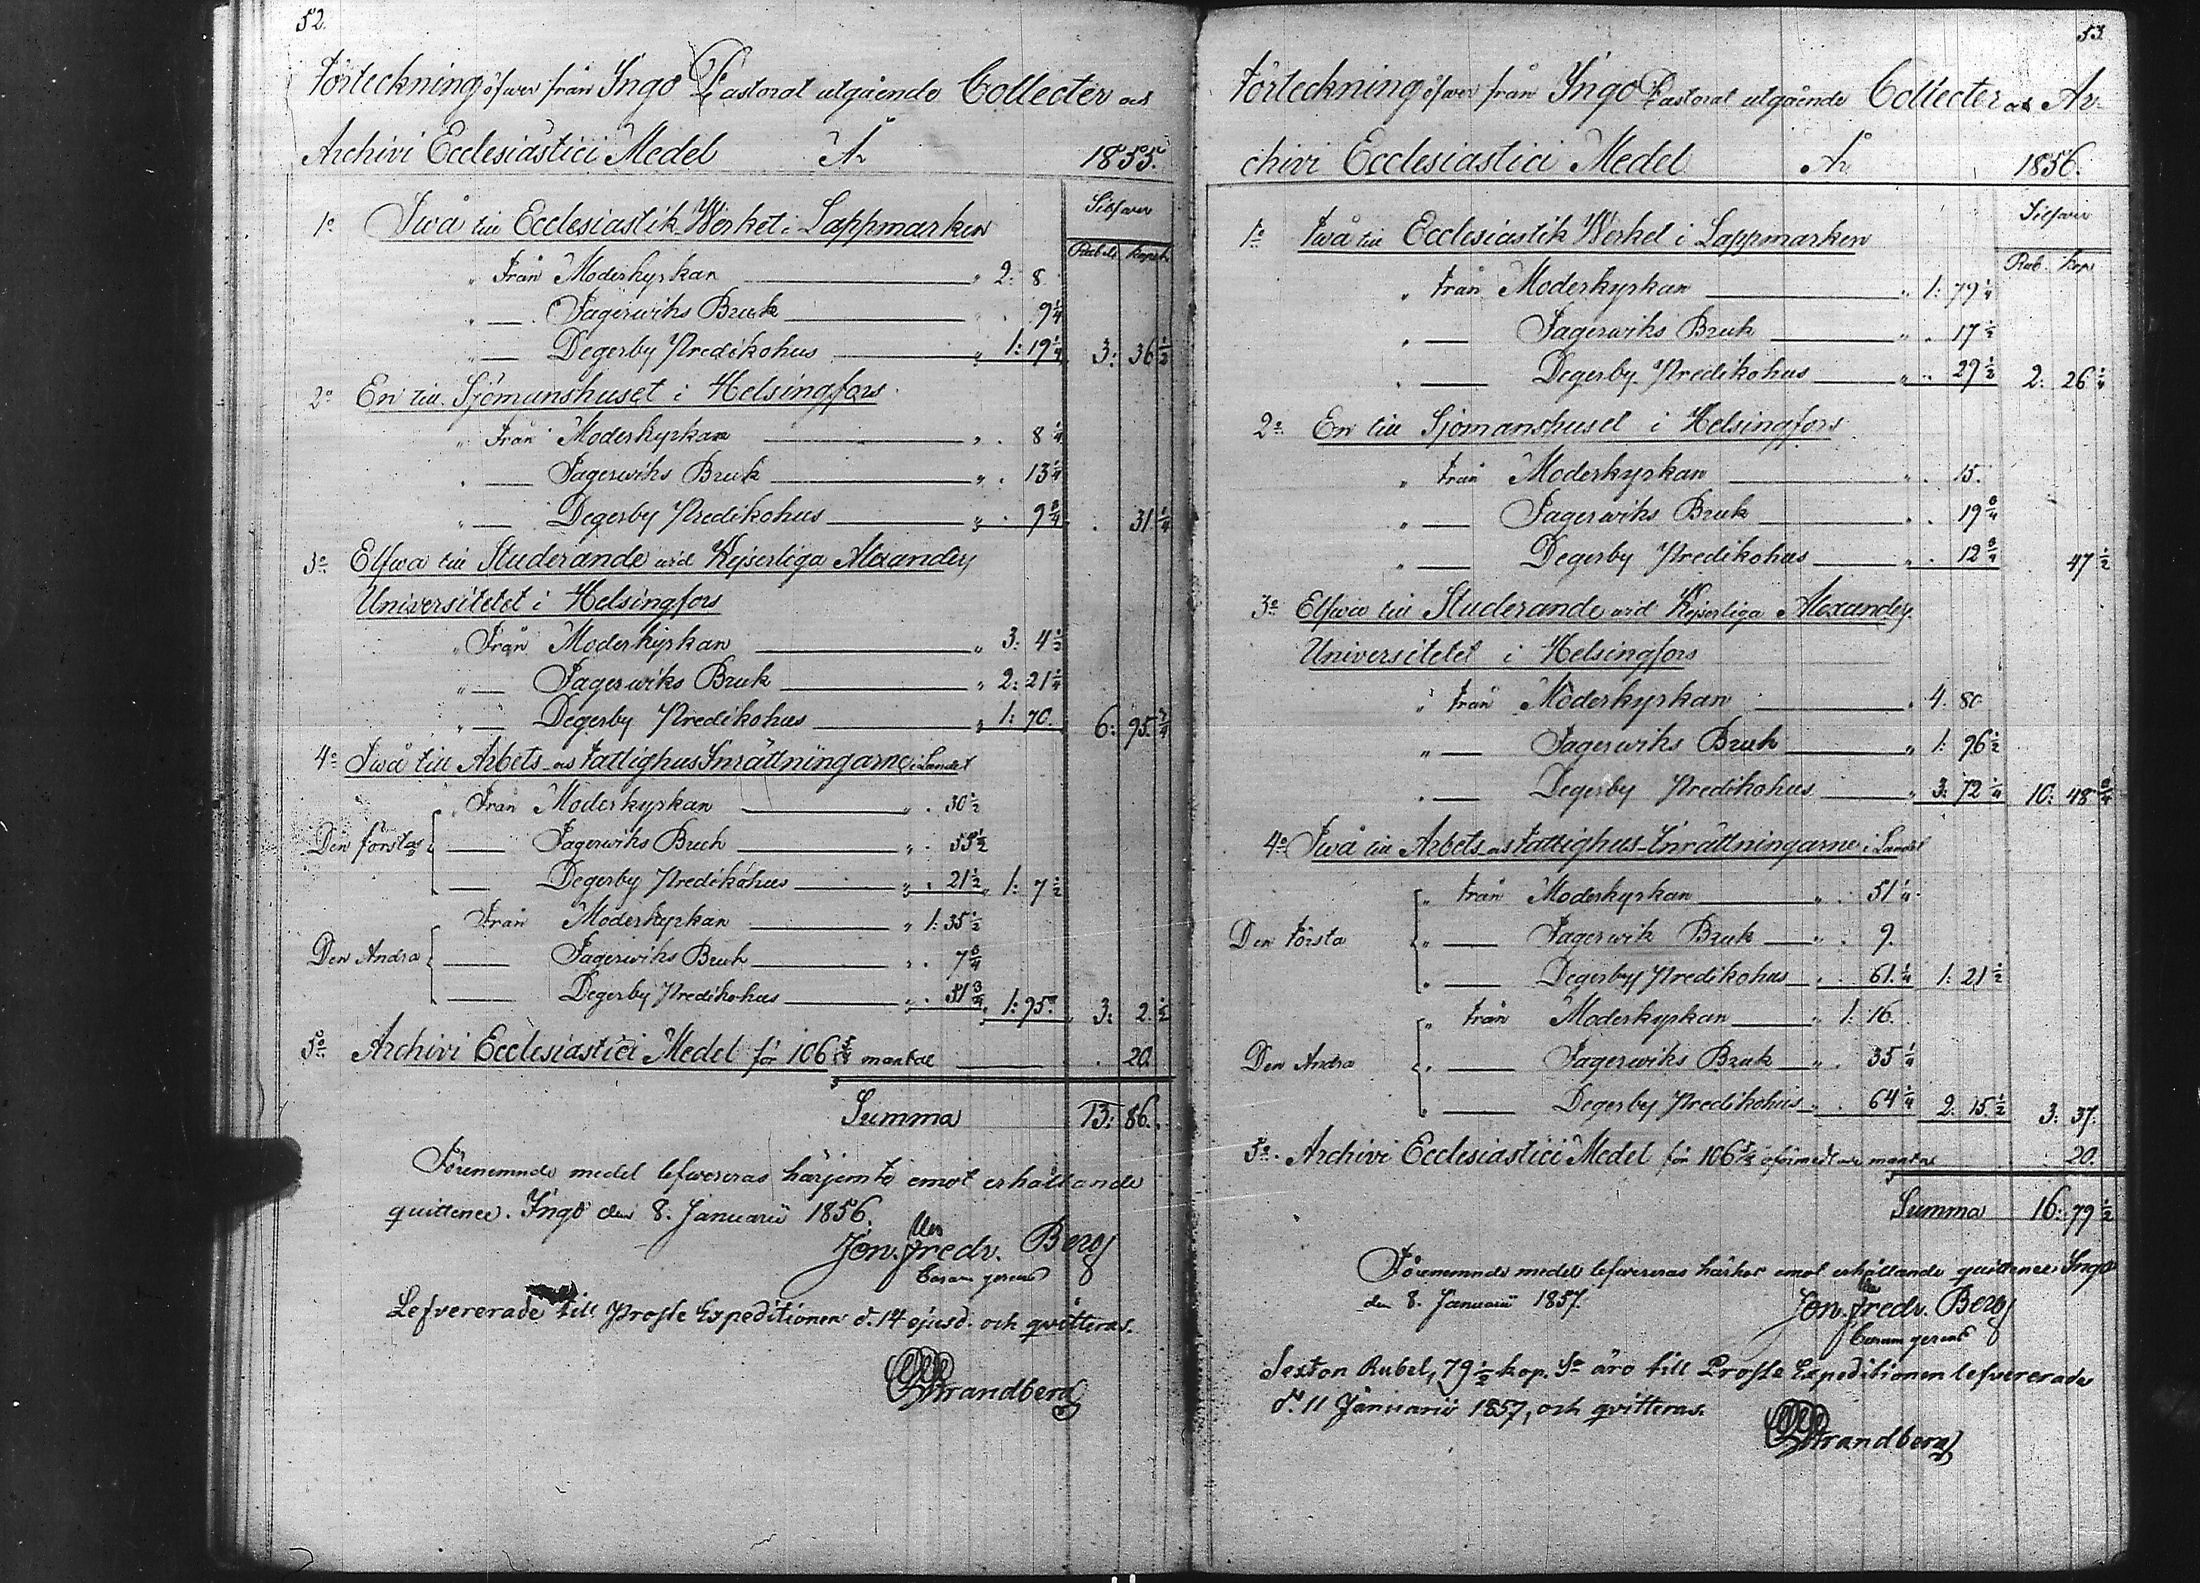 52.
Förteckning öfwer från Ingo Pastorat utgående Collecter och
Archivi Ecclesiastici Medel År 1855.
Silfwer
Rubel kopek
1o Twå till Ecclesiastik Werket i Lappmarken
" Från Moderkyrkan " 2: 8
" — Fagerwiks Bruk " . 9 1/4
" — Degerby Predikohus " 1: 19 1/4 " 3: 36 1/2
2o En till Sjömanshuset i Helsingfors
" Från Moderkyrkan " . 8 1/4
" — Fagerwiks Bruk " . 13 1/4
" — Degerby Predikohus " . 9 3/4 " . 31 1/4
3o Elfwa till Studerande wid Kejserliga Alexanders
Universitetet i Helsingfors
" Från Moderkyrkan " 3: 4 1/2
" — Fagerwiks Bruk " 2: 21 1/4
" — Degerby Predikohus " 1: 70. 6: 95 3/4
4o Twå till Arbets och Fattighus Inrättningarne i Landet
Från Moderkyrkan " . 30 1/2
Den första — Fagerwiks Bruk " . 55 1/2
— Degerby Predikohus " . 21 1/2 " 1: 7 1/2
Från Moderkyrkan " 1: 35 1/2
Den Andra — Fagerwiks Bruk " . 7 3/4
— Degerby Predikohus " . 51 3/4 " 1: 95. " 3: 2 1/2
5o Archivi Ecclesiastici Medel för 106 5/24 mantal . 20.
Summa 13: 86.
Förenemnde medel lefwereras härjemte emot erhållande
quittence. Ingo den 8. Januarii 1856.
Jon. Fredr. Berg
Curam gerens
Lefvererade till Prosste Expeditionen d. 14 ejusd. och qvitteras.
Strandberg
53.
Förteckning öfwer från Ingo Pastorat utgående Collecter och Ar-
chivi Ecclesiastici Medel År 1856.
Silfwer
Rub. kop.
1o Twå till Ecclesiastik Werket i Lappmarken
" från Moderkyrkan " 1: 79 1/4
" — Fagerwiks Bruk " . 17 1/2
" — Degerby Predikohus " . 29 1/2 2: 26 1/4
2o En till Sjömanshuset i Helsingfors
" från Moderkyrkan " . 15.
" — Fagerwiks Bruk " . 19 3/4
" — Degerby Predikohus " . 12 3/4 47 1/2
3o Elfwa till Studerande wid Kejserliga Alexanders
Universitetet i Helsingfors
" från Moderkyrkan " 4: 80
" — Fagerwiks Bruk " 1: 96 1/2
" — Degerby Predikohus " 3: 72 1/4 10: 48 3/4
4o Twå till Arbets och Fattighus-Inrättningarne i Landet
" från Moderkyrkan " . 51 1/4
Den första " — Fagerwik Bruk " . 9.
" — Degerby Predikohus " . 61 1/4 1: 21 1/2
" från Moderkyrkan " 1: 16.
Den Andra " — Fagerwiks Bruk " . 35 1/4
" — Degerby Predikohus " . 64 1/4 2: 15 1/2 3: 37.
5o. Archivi Ecclesiastici Medel för 106 5/24 oförmedlade mantal 20.
Summa 16: 79 1/2
Förenemnde medel lefwereras härhos emot erhållande quittence. Ingo
den 8. Januarii 1857.
Jon. Fredr. Berg
Curam gerens
Sexton Rubel, 79 1/2 kop. Sr äro till Prosste Expeditionen lefvererade
d. 11 Januarii 1857, och qvitteras.
Strandberg